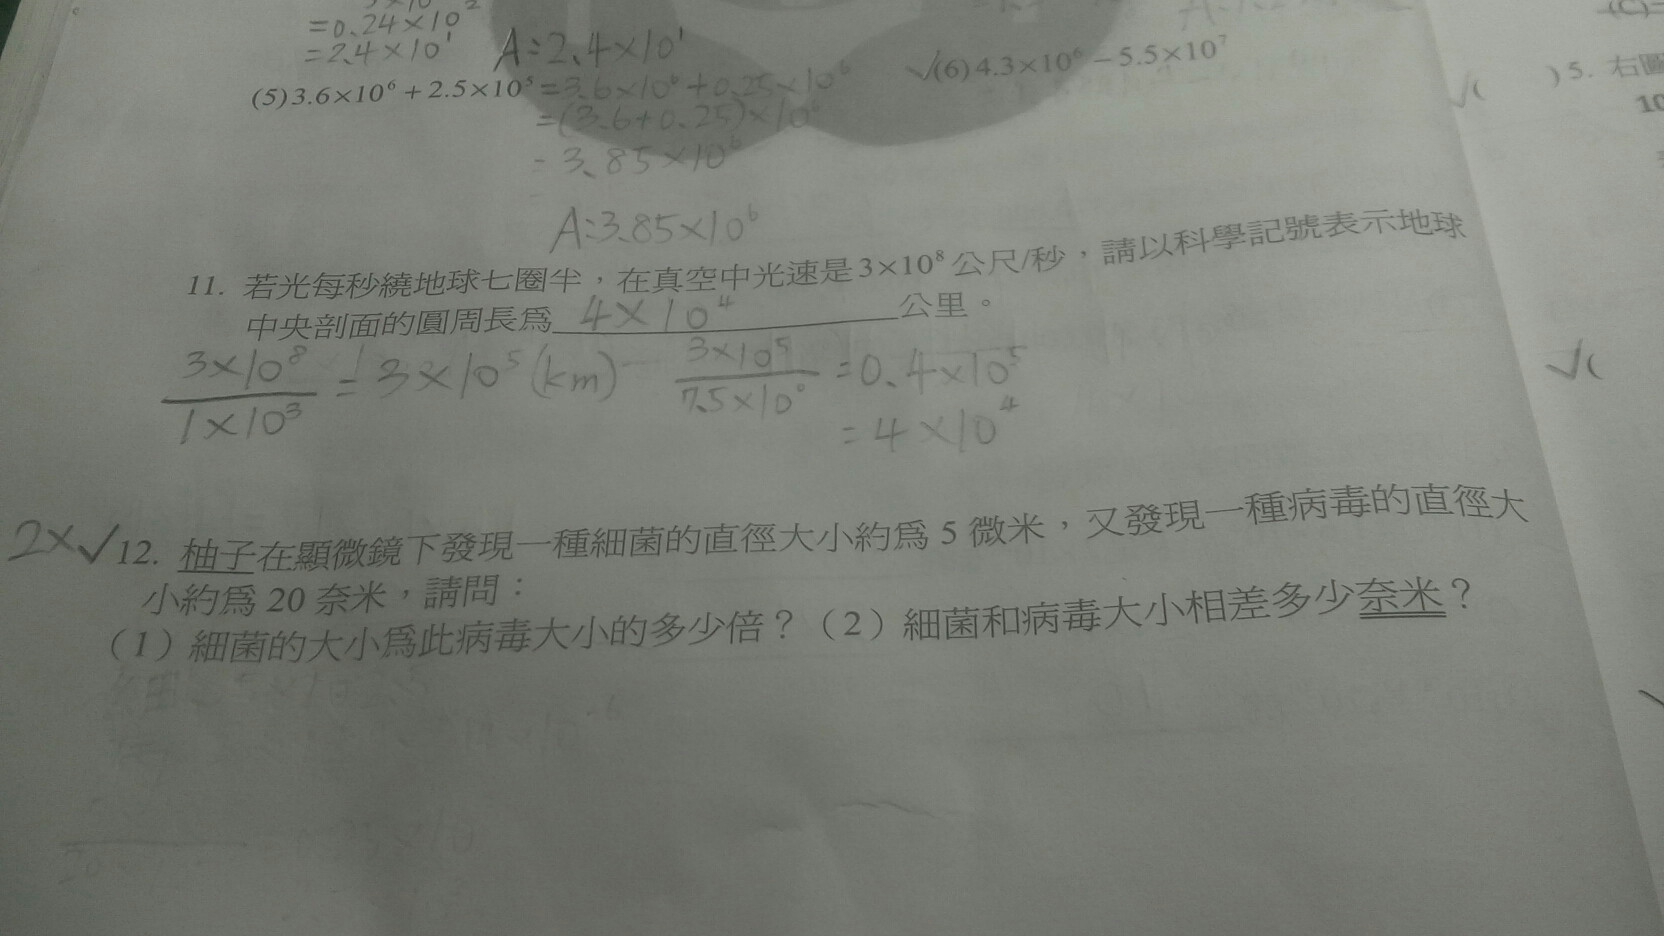 =0.24×10²
=2.4×10¹ A:2.4×10¹
(5)3.6×10⁶+2.5×10⁵=3.6×10⁶+0.25×10⁶
=(3.6+0.25)×10⁶
=3.85×10⁶
A:3.85×10⁶
√(6)4.3×10⁶−5.5×10⁷
11. 若光每秒繞地球七圈半，在真空中光速是3×10⁸公尺/秒，請以科學記號表示地球
中央剖面的圓周長為4×10⁴公里。
3×10⁸/1×10³=3×10⁵(km) 3×10⁵/7.5×10⁰=0.4×10⁵
=4×10⁴
2×√12. 柚子在顯微鏡下發現一種細菌的直徑大小約為 5 微米，又發現一種病毒的直徑大
小約為 20 奈米，請問：
（1）細菌的大小為此病毒大小的多少倍？（2）細菌和病毒大小相差多少奈米？
√( )5. 右圖
10
√(